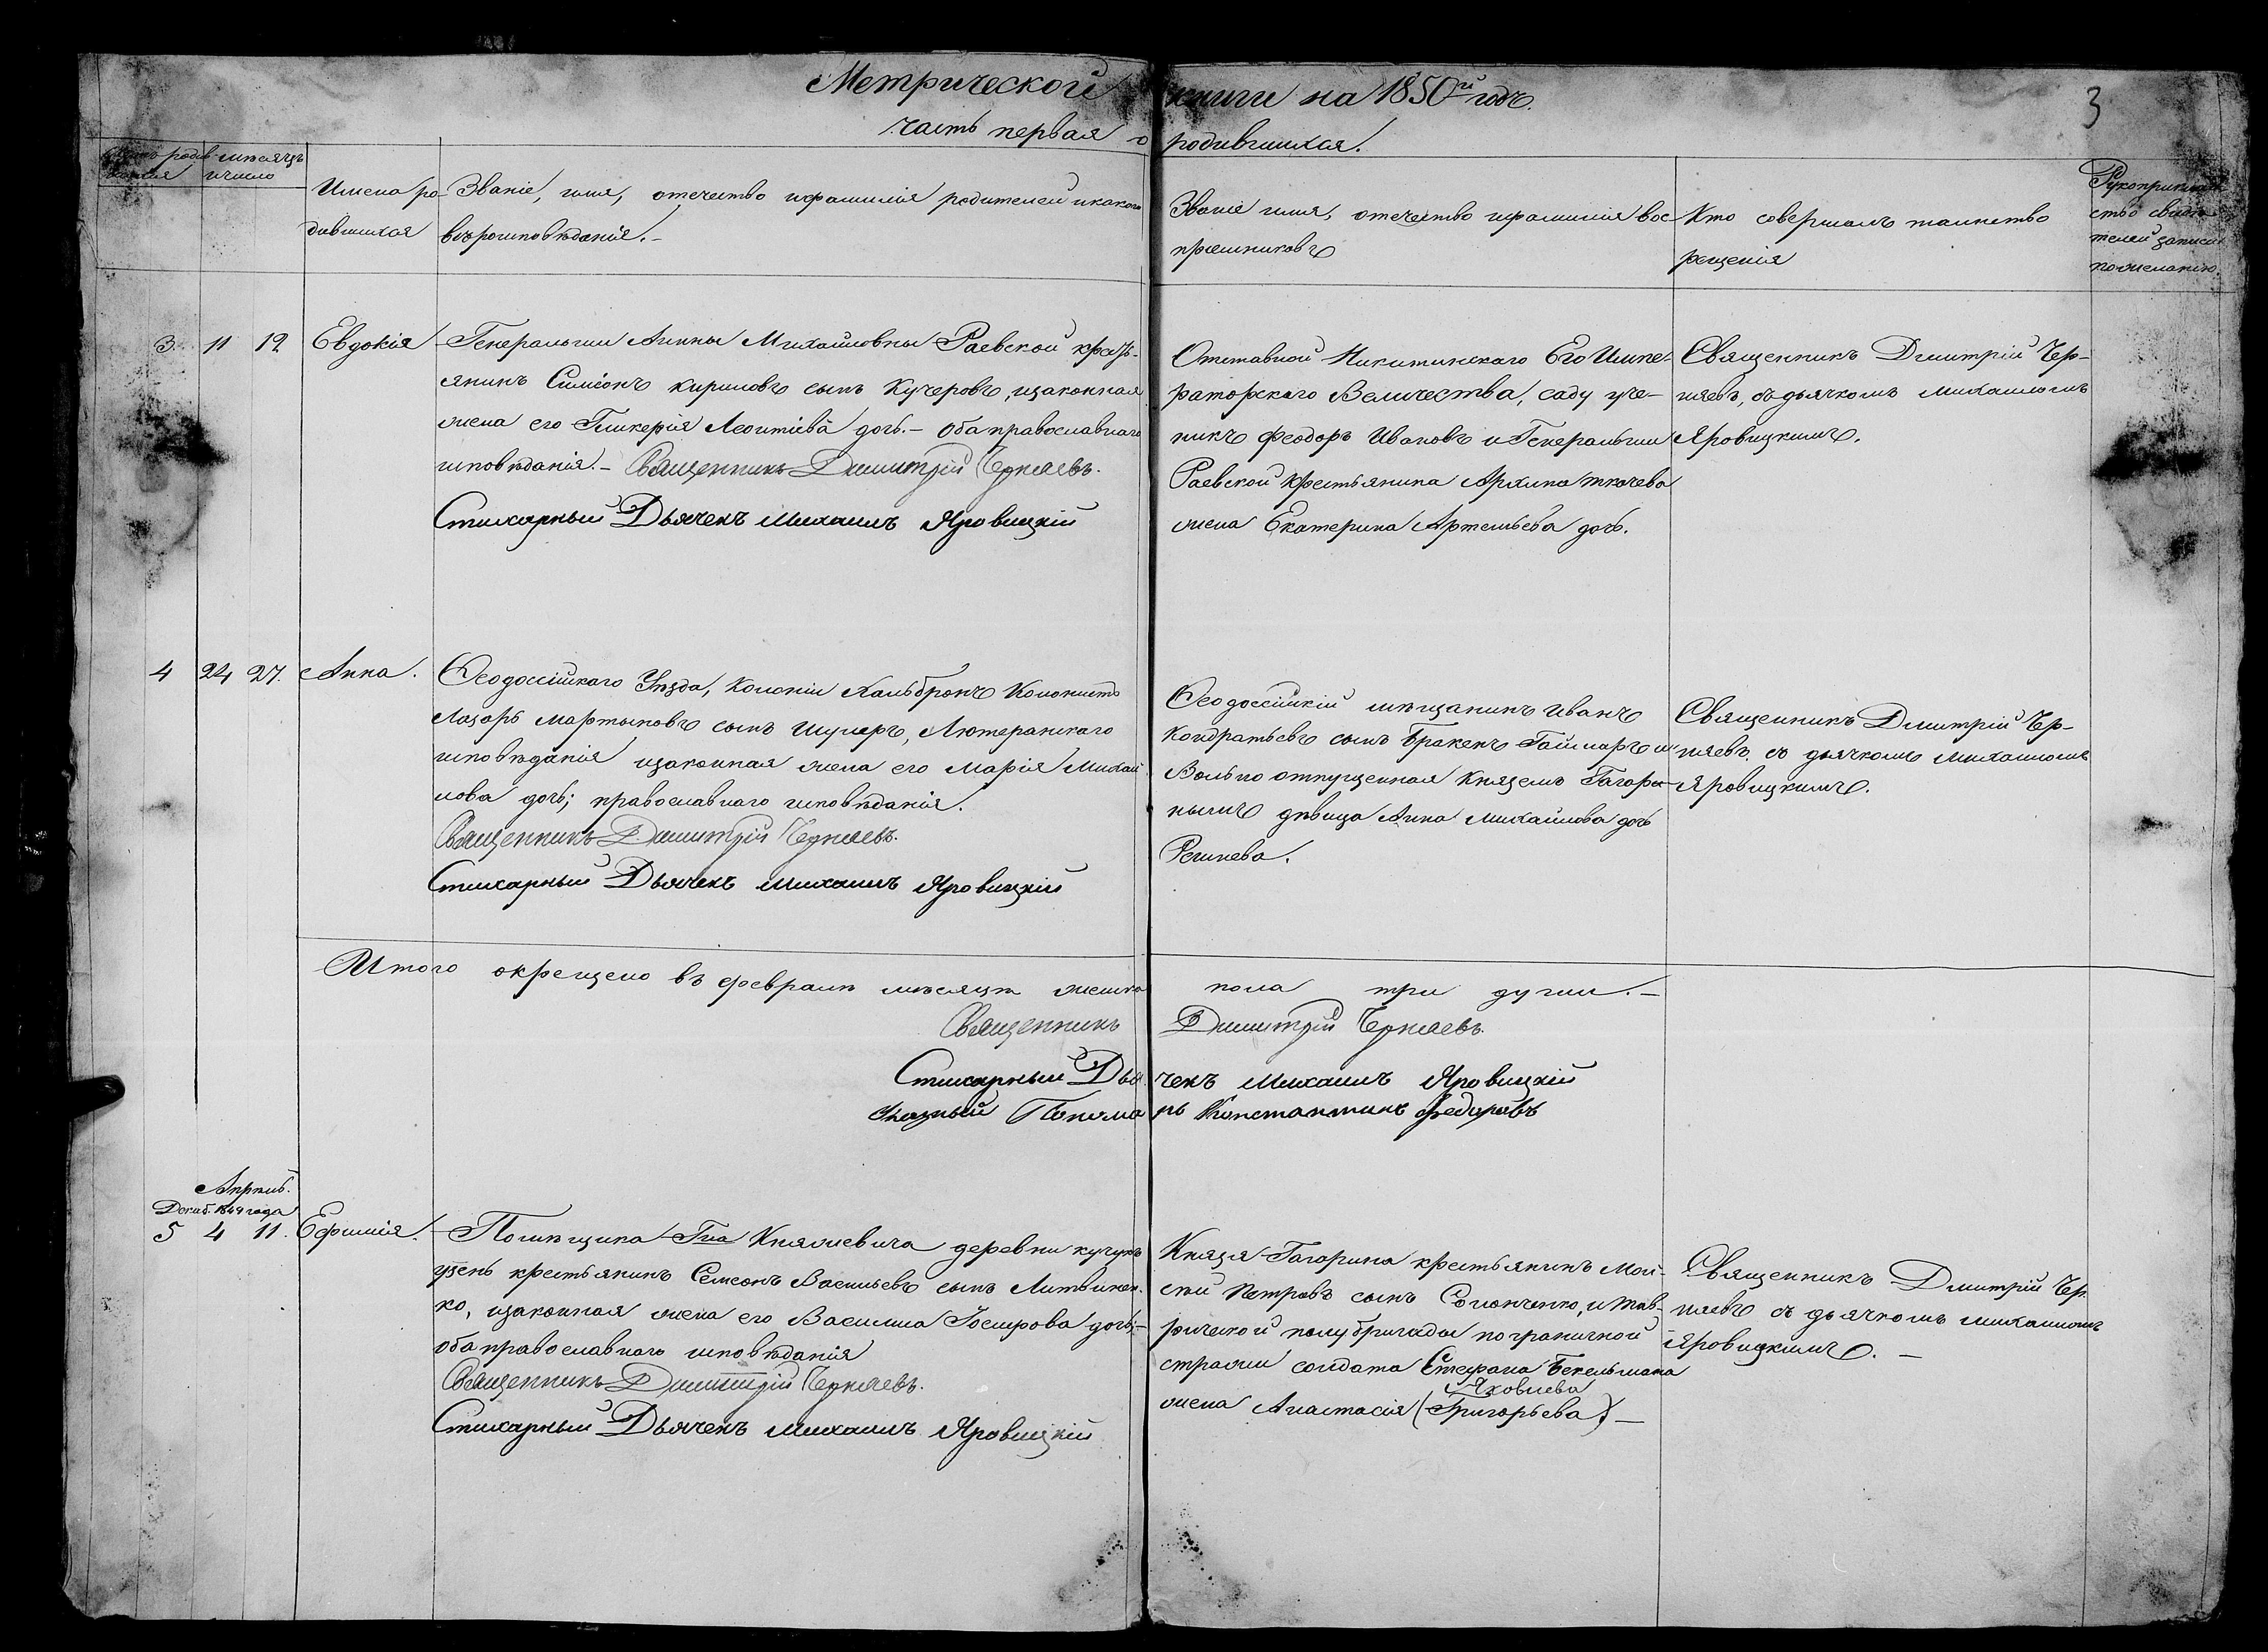 Метрической книги на 1850й годъ.
3
часть первая о родившихся.
мѣсяцъ
и число
Имена ро-
дившихся
Званіе, имя, отечество и фамилія родителей и какого
вѣроисповѣданія.-
Званіе имя, отечество и фамилія вос-
пріемниковъ
Кто совершалъ таинство
крещенія
Рукоприклад
ство свидѣ
телей записи
по желанію.
3. 11 12 Евдокія
Генеральши Анны Михайловны Раевской кресть-
янинъ Симеонъ Кириловъ сынъ Кучеровъ, и законная
жена его Гликерія Леонтіева дочь.- Оба православнаго
исповѣданія.- Священникъ Димитрій Черняевъ.
Стихарный Дьячекъ Михаилъ Яровицкій
Отставной Никитинскаго Его Импе-
раторскаго Величества, саду уче-
никъ Феодоръ Ивановъ и Генеральши
Раевской крестьянина Архипа Ткачева
жена Екатерина Артемьева дочь.
Священникъ Дмитрій Чер-
няевъ, съ дьячкомъ Михаиломъ
Яровицкимъ.
4 24 27. Анна.
Ѳеодосійскаго Уѣзда, Колоніи Хальбронъ Колонистъ
Лазарь Мартыновъ сынъ Шумеръ, Лютеранскаго
исповѣданія и законная жена его Марія Михай
лова дочь; православнаго исповѣданія.
Священникъ Димитрій Черняевъ.
Стихарный Дьячекъ Михаилъ Яровицкій
Ѳеодосійскій мѣщанинъ Иванъ
Кондратьевъ сынъ Бракенъ Гаймаръ и
Вольно отпущенная Княземъ Гагари-
нымъ дѣвица Анна Михайлова дочь
Репнева.
Священникъ Дмитрій Чер-
няевъ. съ дьячкомъ Михаиломъ
Яровицкимъ.
Итого окрещено въ февралѣ мѣсяцѣ женска пола три души.-
Священникъ Димитрій Черняевъ.
Стихарный Дьячекъ Михаилъ Яровицкій
Пономарь Константинъ Федоровъ
Апрѣль.
Декаб. 1849 года
5 4 11. Ефимія.
Помѣщика Гна Княжевича деревни Кучукъ
узень крестьянинъ Семеонъ Васильевъ сынъ Литвинен-
ко, и законная жена его Василиса Іосифова дочь;-
оба православнаго исповѣданія
Священникъ Димитрій Черняевъ.
Стихарный Дьячекъ Михаилъ Яровицкій
Князя Гагарина крестьянинъ Мой-
сей Петровъ сынъ Солонченко, и Тав-
рической полубригады пограничной
стражи солдата Стефана Бекельмана
Яковлева
жена Анастасія (Григорьева).-
Священникъ Дмитрій Чер-
няевъ съ дьячкомъ Михаиломъ
Яровицкимъ.-